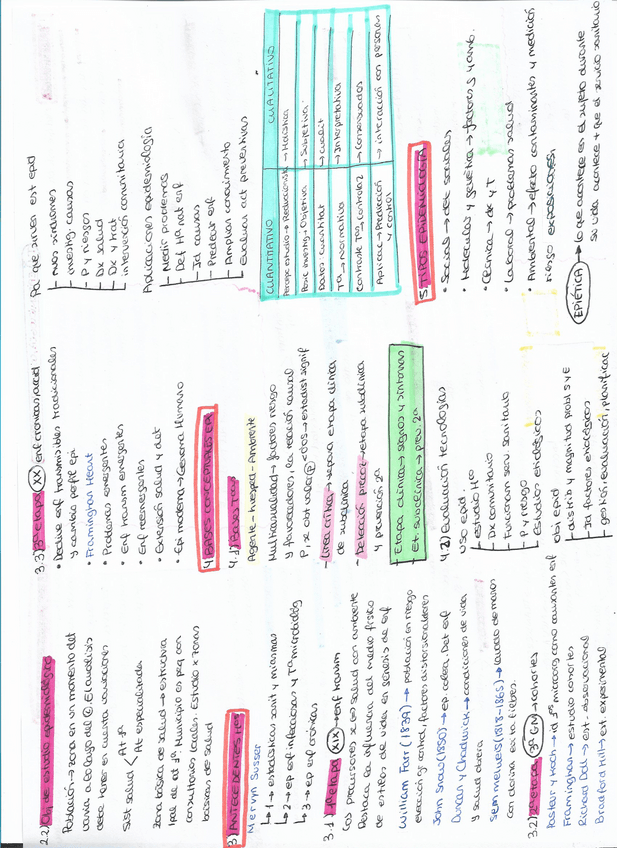 2.2) Obj de estudio epidemiológico
Población → zona en un momento det
varía a lo largo del t. El análisis
debe tener en cuenta variaciones
Sist salud < At 1ª
At especializada
Zona básica de salud → estructura
1pal de at 1ª. Municipio es peq con
consultorios locales. Estudio x zonas
básicas de salud
3) ANTECEDENTES HCOS
Mervyn Susser
↳ 1 → estadísticas sanit y miasmas
↳ 2 → ep enf infecciosas y Tª microbiológ
↳ 3 → ep enf crónicas
3.1) 1ª etapa (XIX) → enf transm
Los precursores x en salud con ambiente
Destaca la influencia del medio físico
de estilos de vida en génesis de enf
William Farr (1839) → población en riesgo
elección gº control, factores distorsionadores
John Snow (1850) → ep cólera. Det enf
Duncan y Chadwick → condiciones de vida
y salud obrera
Semmelweis (1818-1865) → lavado de manos
con clorina evita fiebres.
3.2) 2ª etapa (2ª GM) → cohortes
Pasteur y Koch → id 1os microorg como causantes enf
Framingham → estudio cohortes
Richard Doll → est observacional
Bradford Hill → est. experimental
3.3) 3ª etapa (XX) enf crónicas
• Declive enf transmisibles tradicionales
y cambia perfil epi
• Framingham Heart
• Problemas emergentes
• Enf transm emergentes
• Enf reemergentes
• Extensión salud y det
• Epi moderna → Genoma Humano
4) BASES CONCEPTUALES EPI
4.1) Bases Tcas
Agente - huésped - Ambiente
Multicausalidad → factores riesgo
y favorecedores, la relación causal
P, se obtiene datos → estadíst signif
- Línea crítica → separa etapa clínica
de subclínica
- Detección precoz → etapa subclínica
y prevención 2ª
- Etapa clínica → signos y síntomas
- Et. subclínica → prev. 2ª
4.2) Evaluación tecnologías
Uso epid
estudio Hº
Dx comunitario
Funcionam serv. sanitario
P y riesgo
Estudios etiológicos
obj epid
distrib y magnitud probls y E
Id factores etiológicos
gestión, evaluación, planificac
Pa' que sirven est epid
nvos síndromes
investig causas
P y riesgos
Dx salud
Dx y trat
intervención comunitaria
Aplicaciones epidemiología
Medir problemas
Def Hª nat enf
Id causas
Predecir enf
Ampliar conocimiento
Evaluar act preventivas
CUANTITATIVO CUALITATIVO
Perspec estudio → Reduccionista → Holística
Posic investig → Objetiva → Subjetiva
Datos → cuantitat → cualit
Tª → Normativa → Interpretativa
Contraste Tªs → controla2 → Consensuados
Aplicac → Predicción y control → interacción con personas
5. TIPOS EPIDEMIOLOGÍA
• Social → det sociales
• Molecular y genética → factores y amb.
• Clínica → dx y T
• Laboral → problemas salud
• Ambiental → efecto contaminantes y medición
riesgo exposición
EPIÉTICA → lo que acontece en el sujeto durante
su vida acontece + que el servicio sanitario